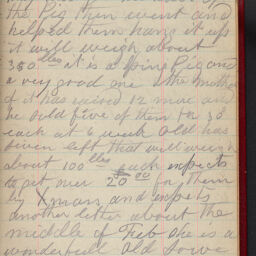 the Pig then went and
helped them hang it up
it will weigh about
350 lbs it is a Spring Pig and
a very good one the mother
of it has raised 12 more and
he sold five of them for 30
each at 6 week old has
seven left that will weigh
about 100 lbs each expects
to get over 20 00 for them
by Xmas and expects
another letter about the
middle of Feb she is a
wonderfull old Sowe